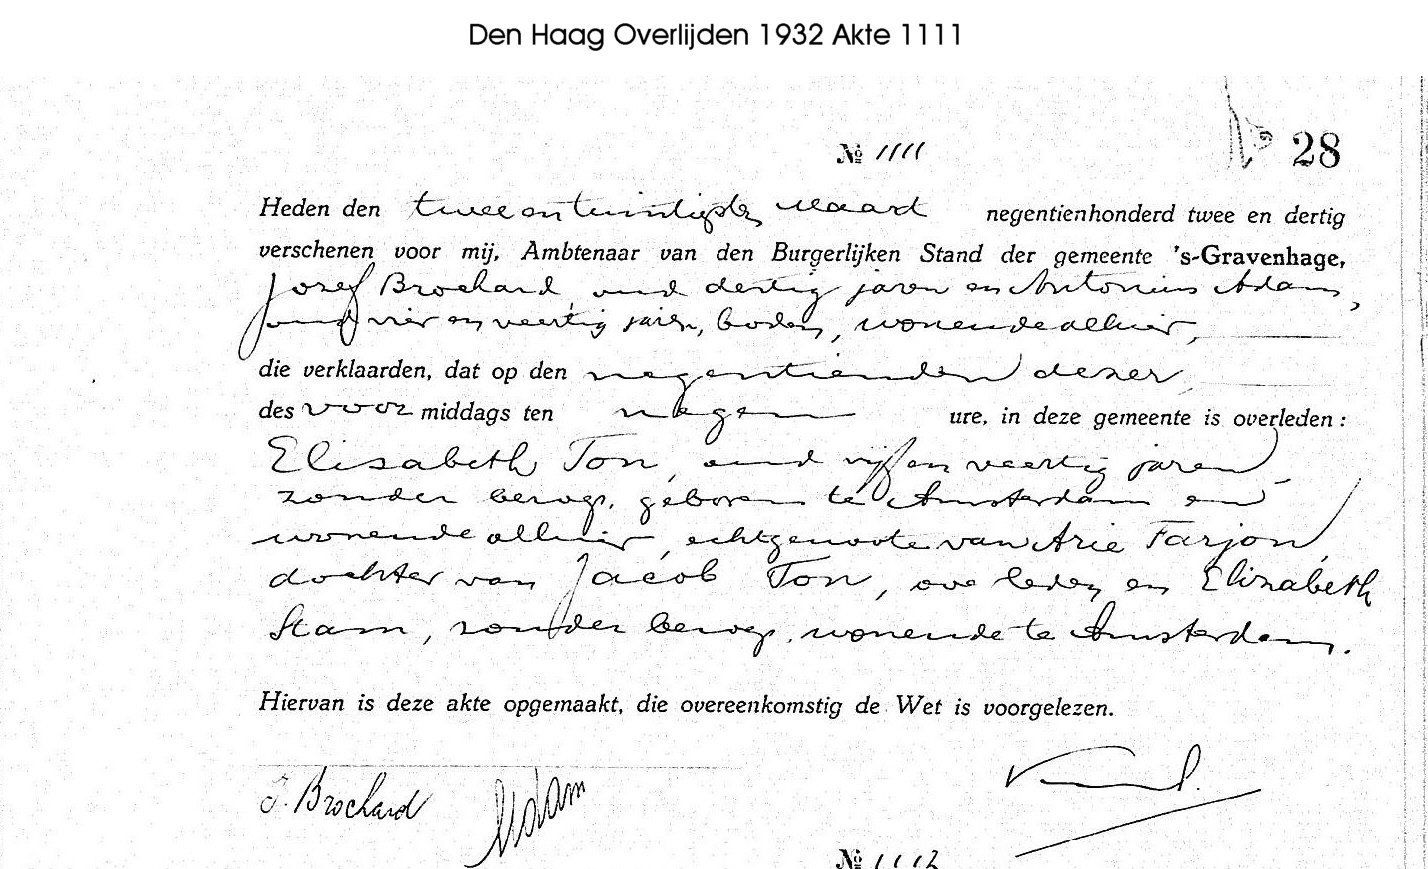 Den Haag Overlijden 1932 Akte 1111
№ 1111
№ 28
Heden den twee en twintigsten Maart negentienhonderd twee en dertig
verschenen voor mij, Ambtenaar van den Burgerlijken Stand der gemeente 's-Gravenhage,
Jozef Brochard, oud dertig jaren en Antonius Adam,
oud vier en veertig jaren, boden, wonende alhier,
die verklaarden, dat op den negentienden dezer,
des voor middags ten negen ure, in deze gemeente is overleden:
Elisabeth Ton, oud vijf en veertig jaren,
zonder beroep, geboren te Amsterdam en
wonende alhier, echtgenoote van Arie Farjon,
dochter van Jacob Ton, overleden en Elizabeth
Stam, zonder beroep, wonende te Amsterdam.
Hiervan is deze akte opgemaakt, die overeenkomstig de Wet is voorgelezen.
J. Brochard Adam
№ 1112